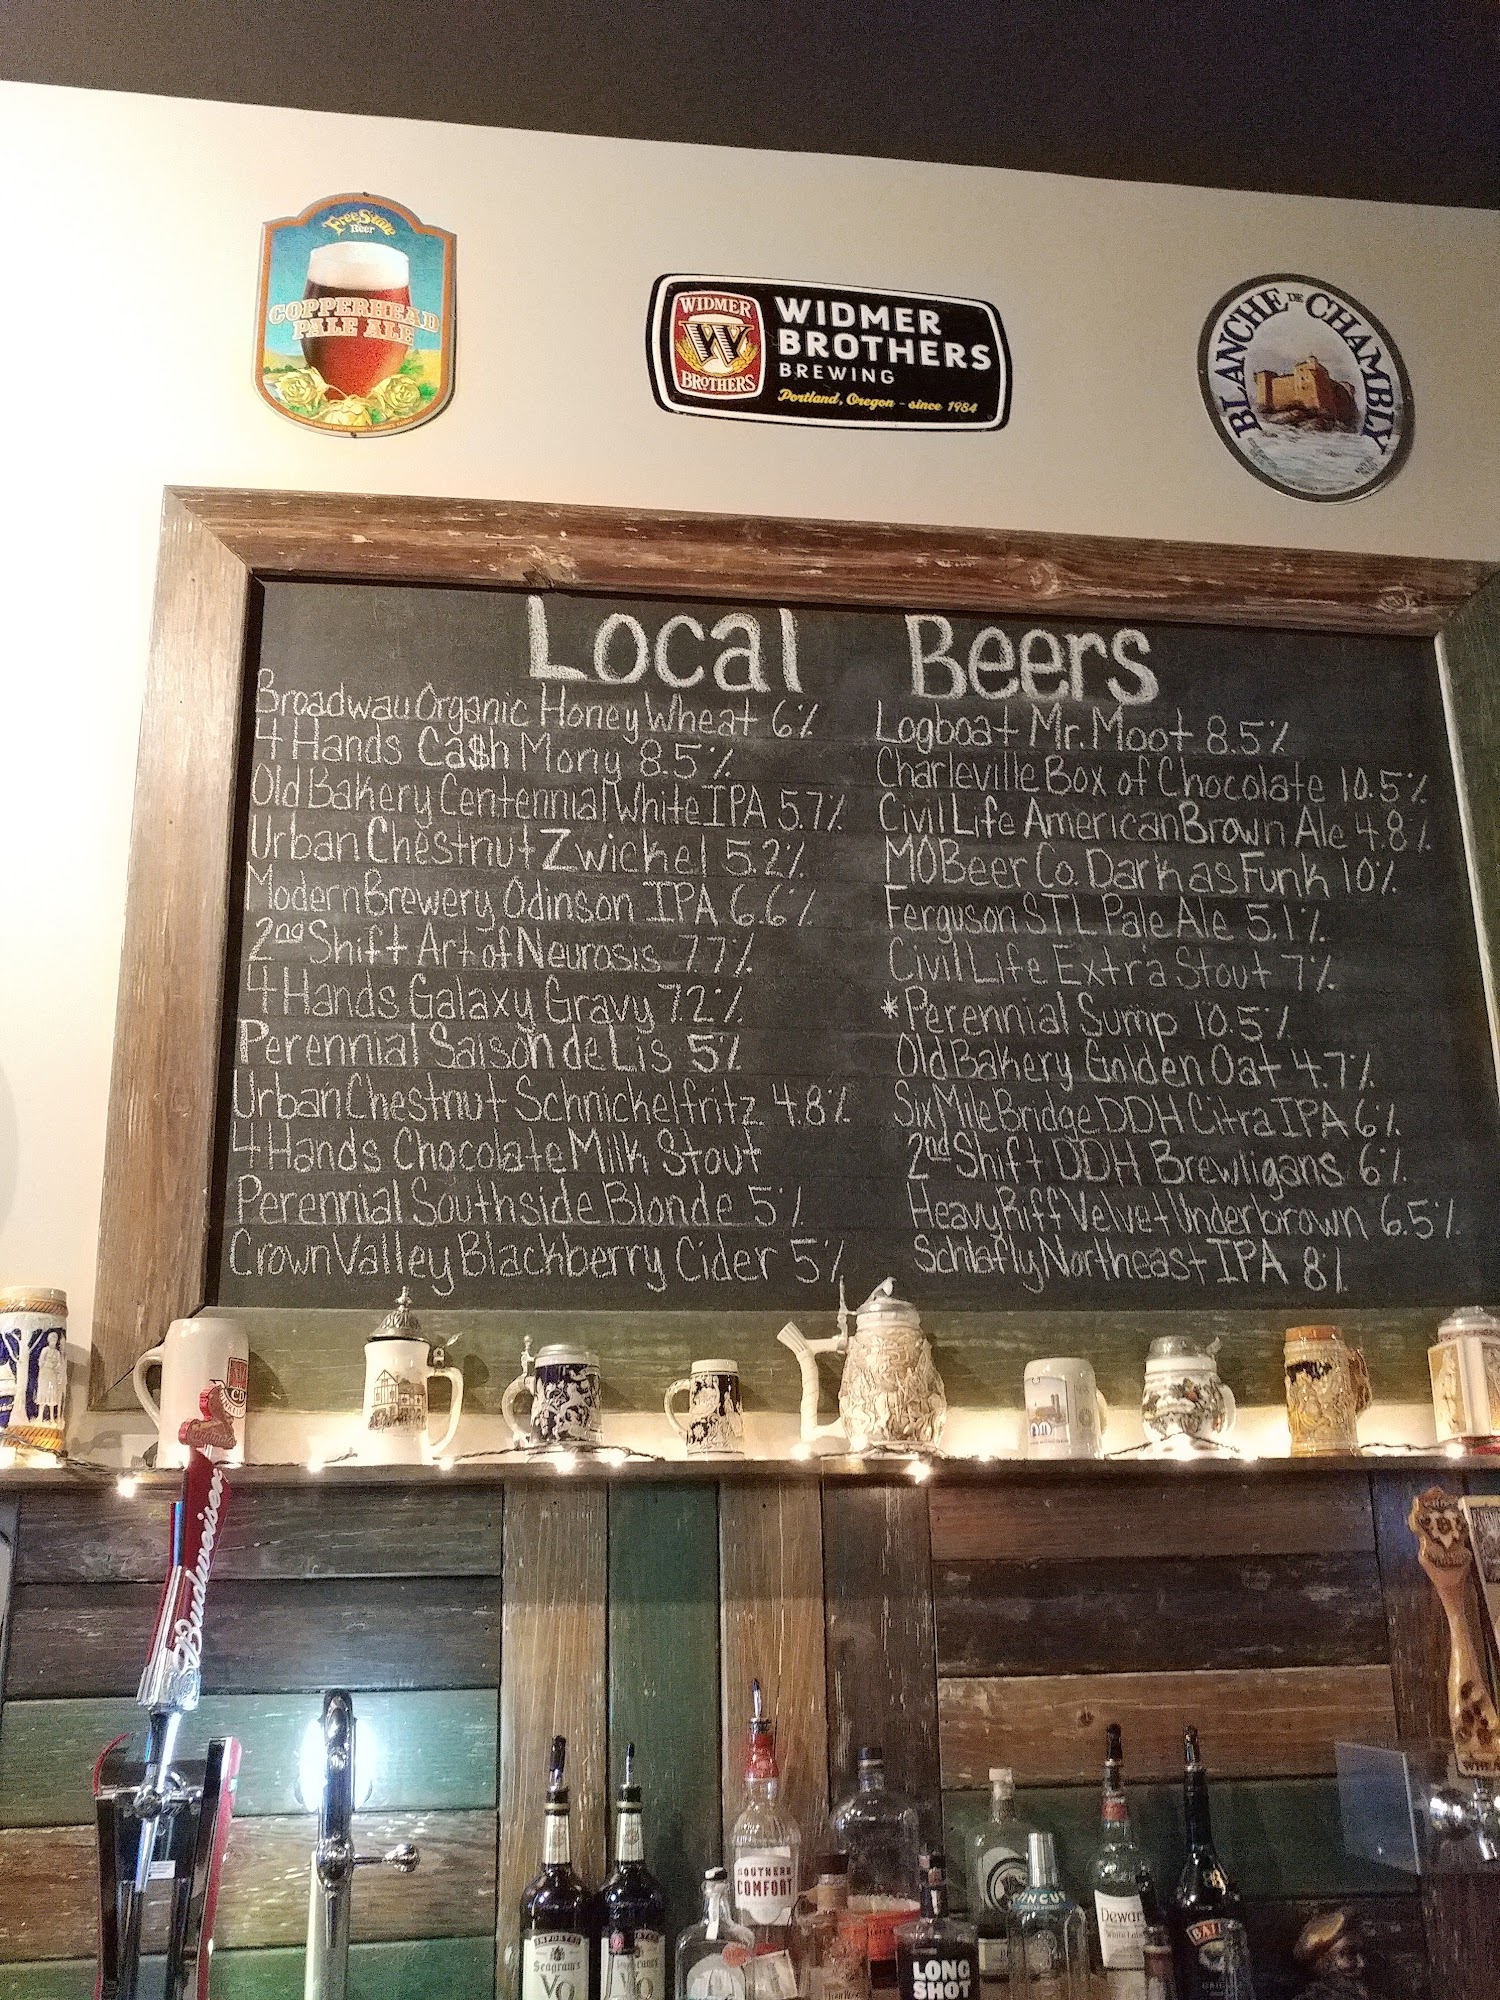 Free State
Beer
COPPERHEAD
PALE ALE
WIDMER
W
BROTHERS
WIDMER
BROTHERS
BREWING
Portland, Oregon - since 1984
BLANCHE DE CHAMBLY
Local Beers
Broadway Organic Honey Wheat 6%
4 Hands Ca$h Mony 8.5%
Old Bakery Centennial White IPA 5.7%
Urban Chestnut Zwickel 5.2%
Modern Brewery Odinson IPA 6.6%
2nd Shift Art of Neurosis 7.7%
4 Hands Galaxy Gravy 7.2%
Perennial Saison de Lis 5%
Urban Chestnut Schnickelfritz 4.8%
4 Hands Chocolate Milk Stout
Perennial Southside Blonde 5%
Crown Valley Blackberry Cider 5%
Logboat Mr. Moot 8.5%
Charleville Box of Chocolate 10.5%
Civil Life American Brown Ale 4.8%
MO Beer Co. Dark as Funk 10%
Ferguson STL Pale Ale 5.1%
Civil Life Extra Stout 7%
*Perennial Sump 10.5%
Old Bakery Golden Oat 4.7%
Six Mile Bridge DDH Citra IPA 6%
2nd Shift DDH Brewligans 6%
Heavy Riff Velvet Underbrown 6.5%
Schlafly Northeast IPA 8%
Budweiser
SOUTHERN
COMFORT
IMPORTED
Seagram's
VO
IMPORTED
Seagram's
VO
LONG
SHOT
Dewar
BAI